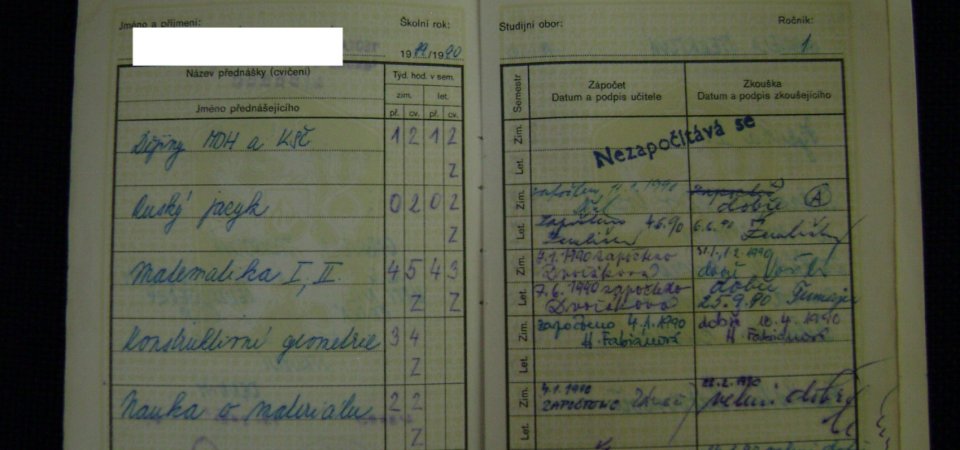 Jméno a příjmení:
Školní rok:
1989/1990
Název přednášky (cvičení)
Týd. hod. v sem.
zim. let.
Jméno přednášejícího
př. cv. př. cv.
Dějiny MDH a KSČ 1 2 1 2
Z
Ruský jazyk 0 2 0 2
Z
Matematika I, II. 4 5 4 3
Z Z
Konstruktivní geometrie 3 4
Z
Nauka o materiálu 2 2
Z
Studijní obor:
Ročník:
1.
Semestr
Zápočet
Datum a podpis učitele
Zkouška
Datum a podpis zkoušejícího
Zim.
Nezapočítává se
Let.
Zim. 1990 dobře A
Let. Započteno 4.6.90 6.6.90
Zim. 4.1.1990 započteno 1990
Dvořáková
Let. 7.6.1990 započteno dobře
Dvořáková 25.9.90
Zim. započteno 4.1.1990 dobře 1990
H. Fabiánová H. Fabiánová
Let.
Zim. 4.1.1990 1990
ZAPOČTENO velmi dobře
Let.